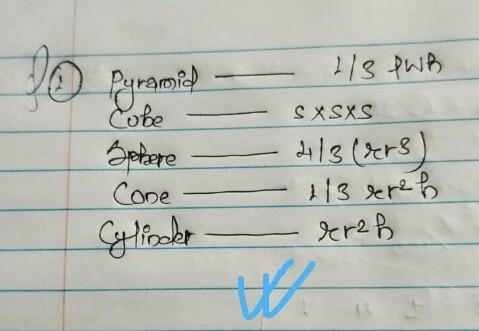 2 Pyramid — 1/3 lwh
Cube — s×s×s
Sphere — 4/3 (πr3)
Cone — 1/3 πr²h
Cylinder — πr²h